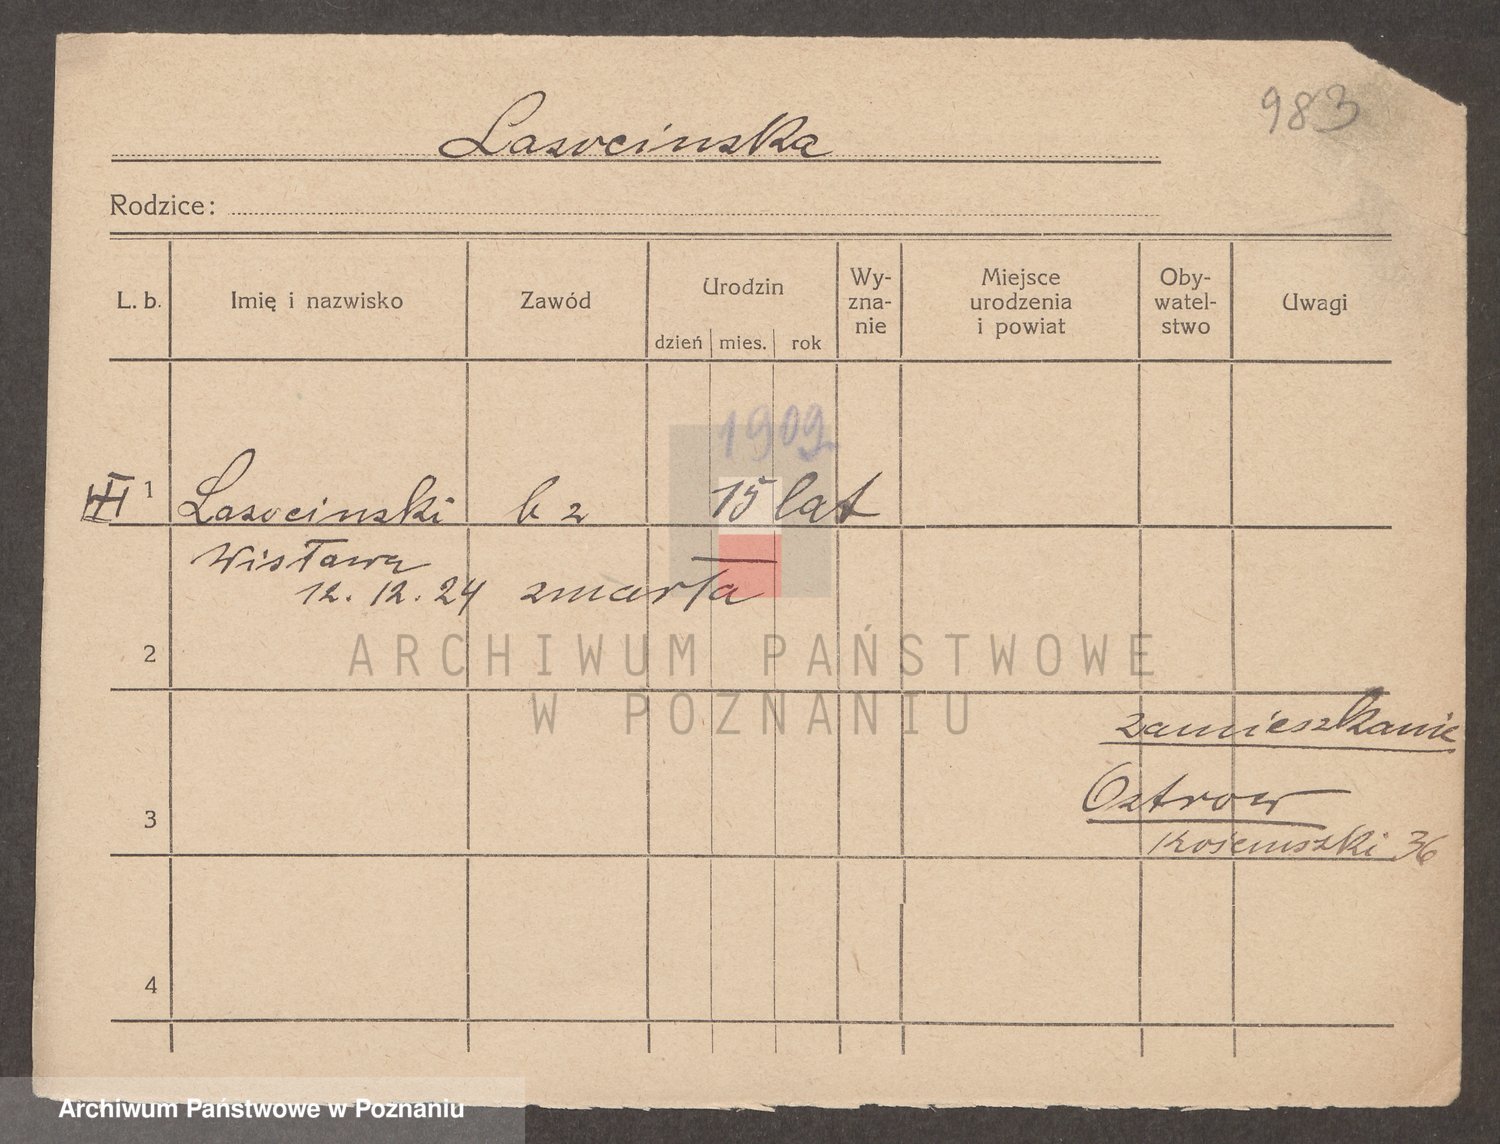 983
Lasocinska
Rodzice:
L. b. Imię i nazwisko Zawód Urodzin dzień mies. rok Wy-zna-nie Miejsce urodzenia i powiat Oby-watel-stwo Uwagi
1909
1 Lasocinski b z 15 lat
Wisława
12. 12. 24 zmarła
2
ARCHIWUM PAŃSTWOWE
W POZNANIU
zamieszkanie
Ostrow
3
Kościuszki 36
4
Archiwum Państwowe w Poznaniu